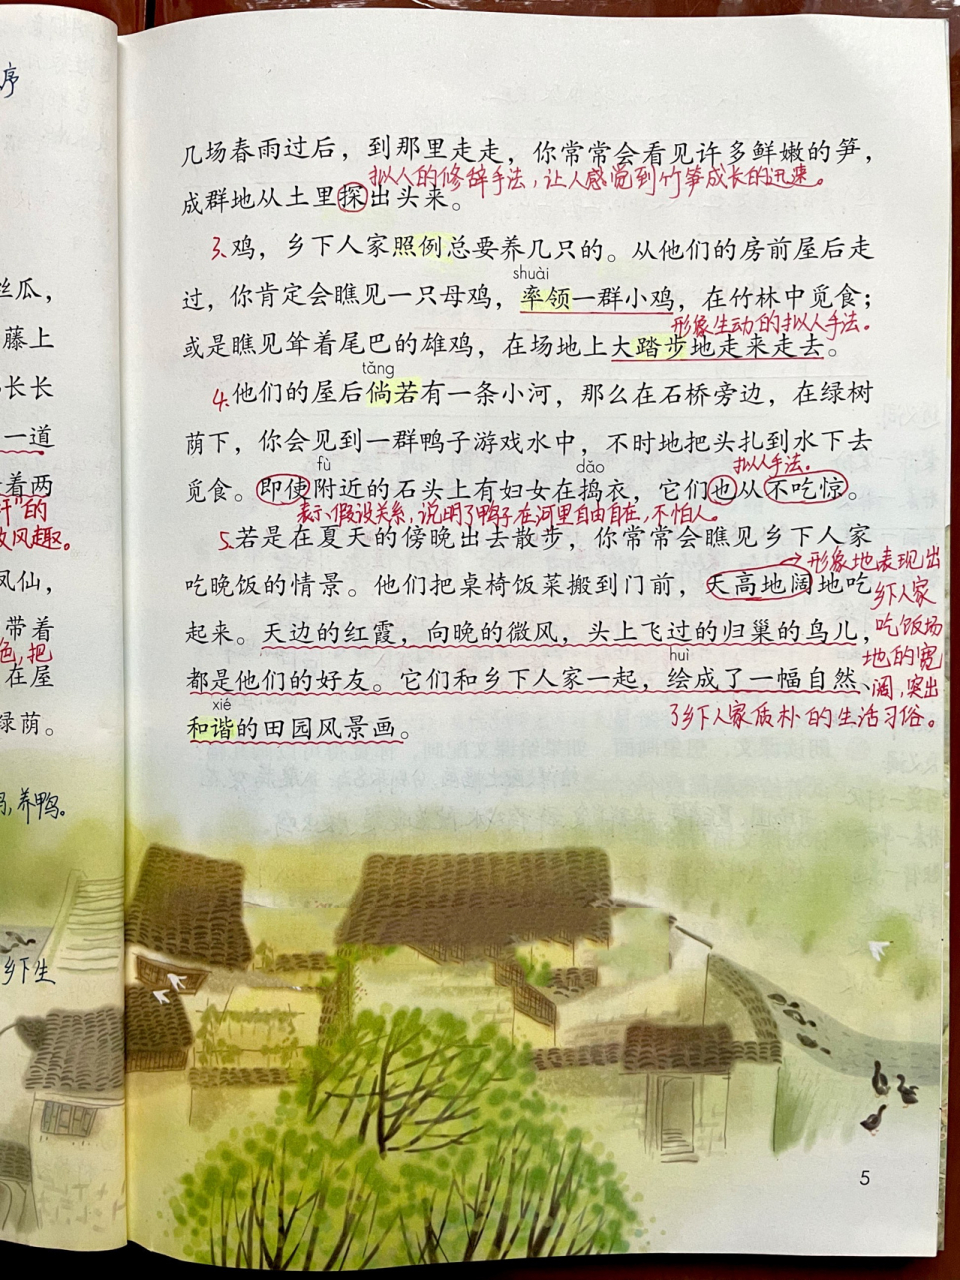 序
丝瓜，
藤上
长长
一道
着两
杆”的
风趣。
凤仙，
带着
色，把
在屋
绿荫。
鸡，养鸭。
乡下生
几场春雨过后，到那里走走，你常常会看见许多鲜嫩的笋，
拟人的修辞手法，让人感觉到竹笋成长的迅速。
成群地从土里探出头来。
3.鸡，乡下人家照例总要养几只的。从他们的房前屋后走
shuài
过，你肯定会瞧见一只母鸡，率领一群小鸡，在竹林中觅食；
形象生动的拟人手法。
或是瞧见耸着尾巴的雄鸡，在场地上大踏步地走来走去。
tǎng
4.他们的屋后倘若有一条小河，那么在石桥旁边，在绿树
荫下，你会见到一群鸭子游戏水中，不时地把头扎到水下去
fù dǎo 拟人手法。
觅食。即使附近的石头上有妇女在捣衣，它们也从不吃惊。
表示假设关系，说明了鸭子在河里自由自在，不怕人。
5.若是在夏天的傍晚出去散步，你常常会瞧见乡下人家
吃晚饭的情景。他们把桌椅饭菜搬到门前，天高地阔地吃
起来。天边的红霞，向晚的微风，头上飞过的归巢的鸟儿，
huì
都是他们的好友。它们和乡下人家一起，绘成了一幅自然、
xié
和谐的田园风景画。
形象地表现出
乡下人家
吃饭场
地的宽
阔，突出
了乡下人家质朴的生活习俗。
5